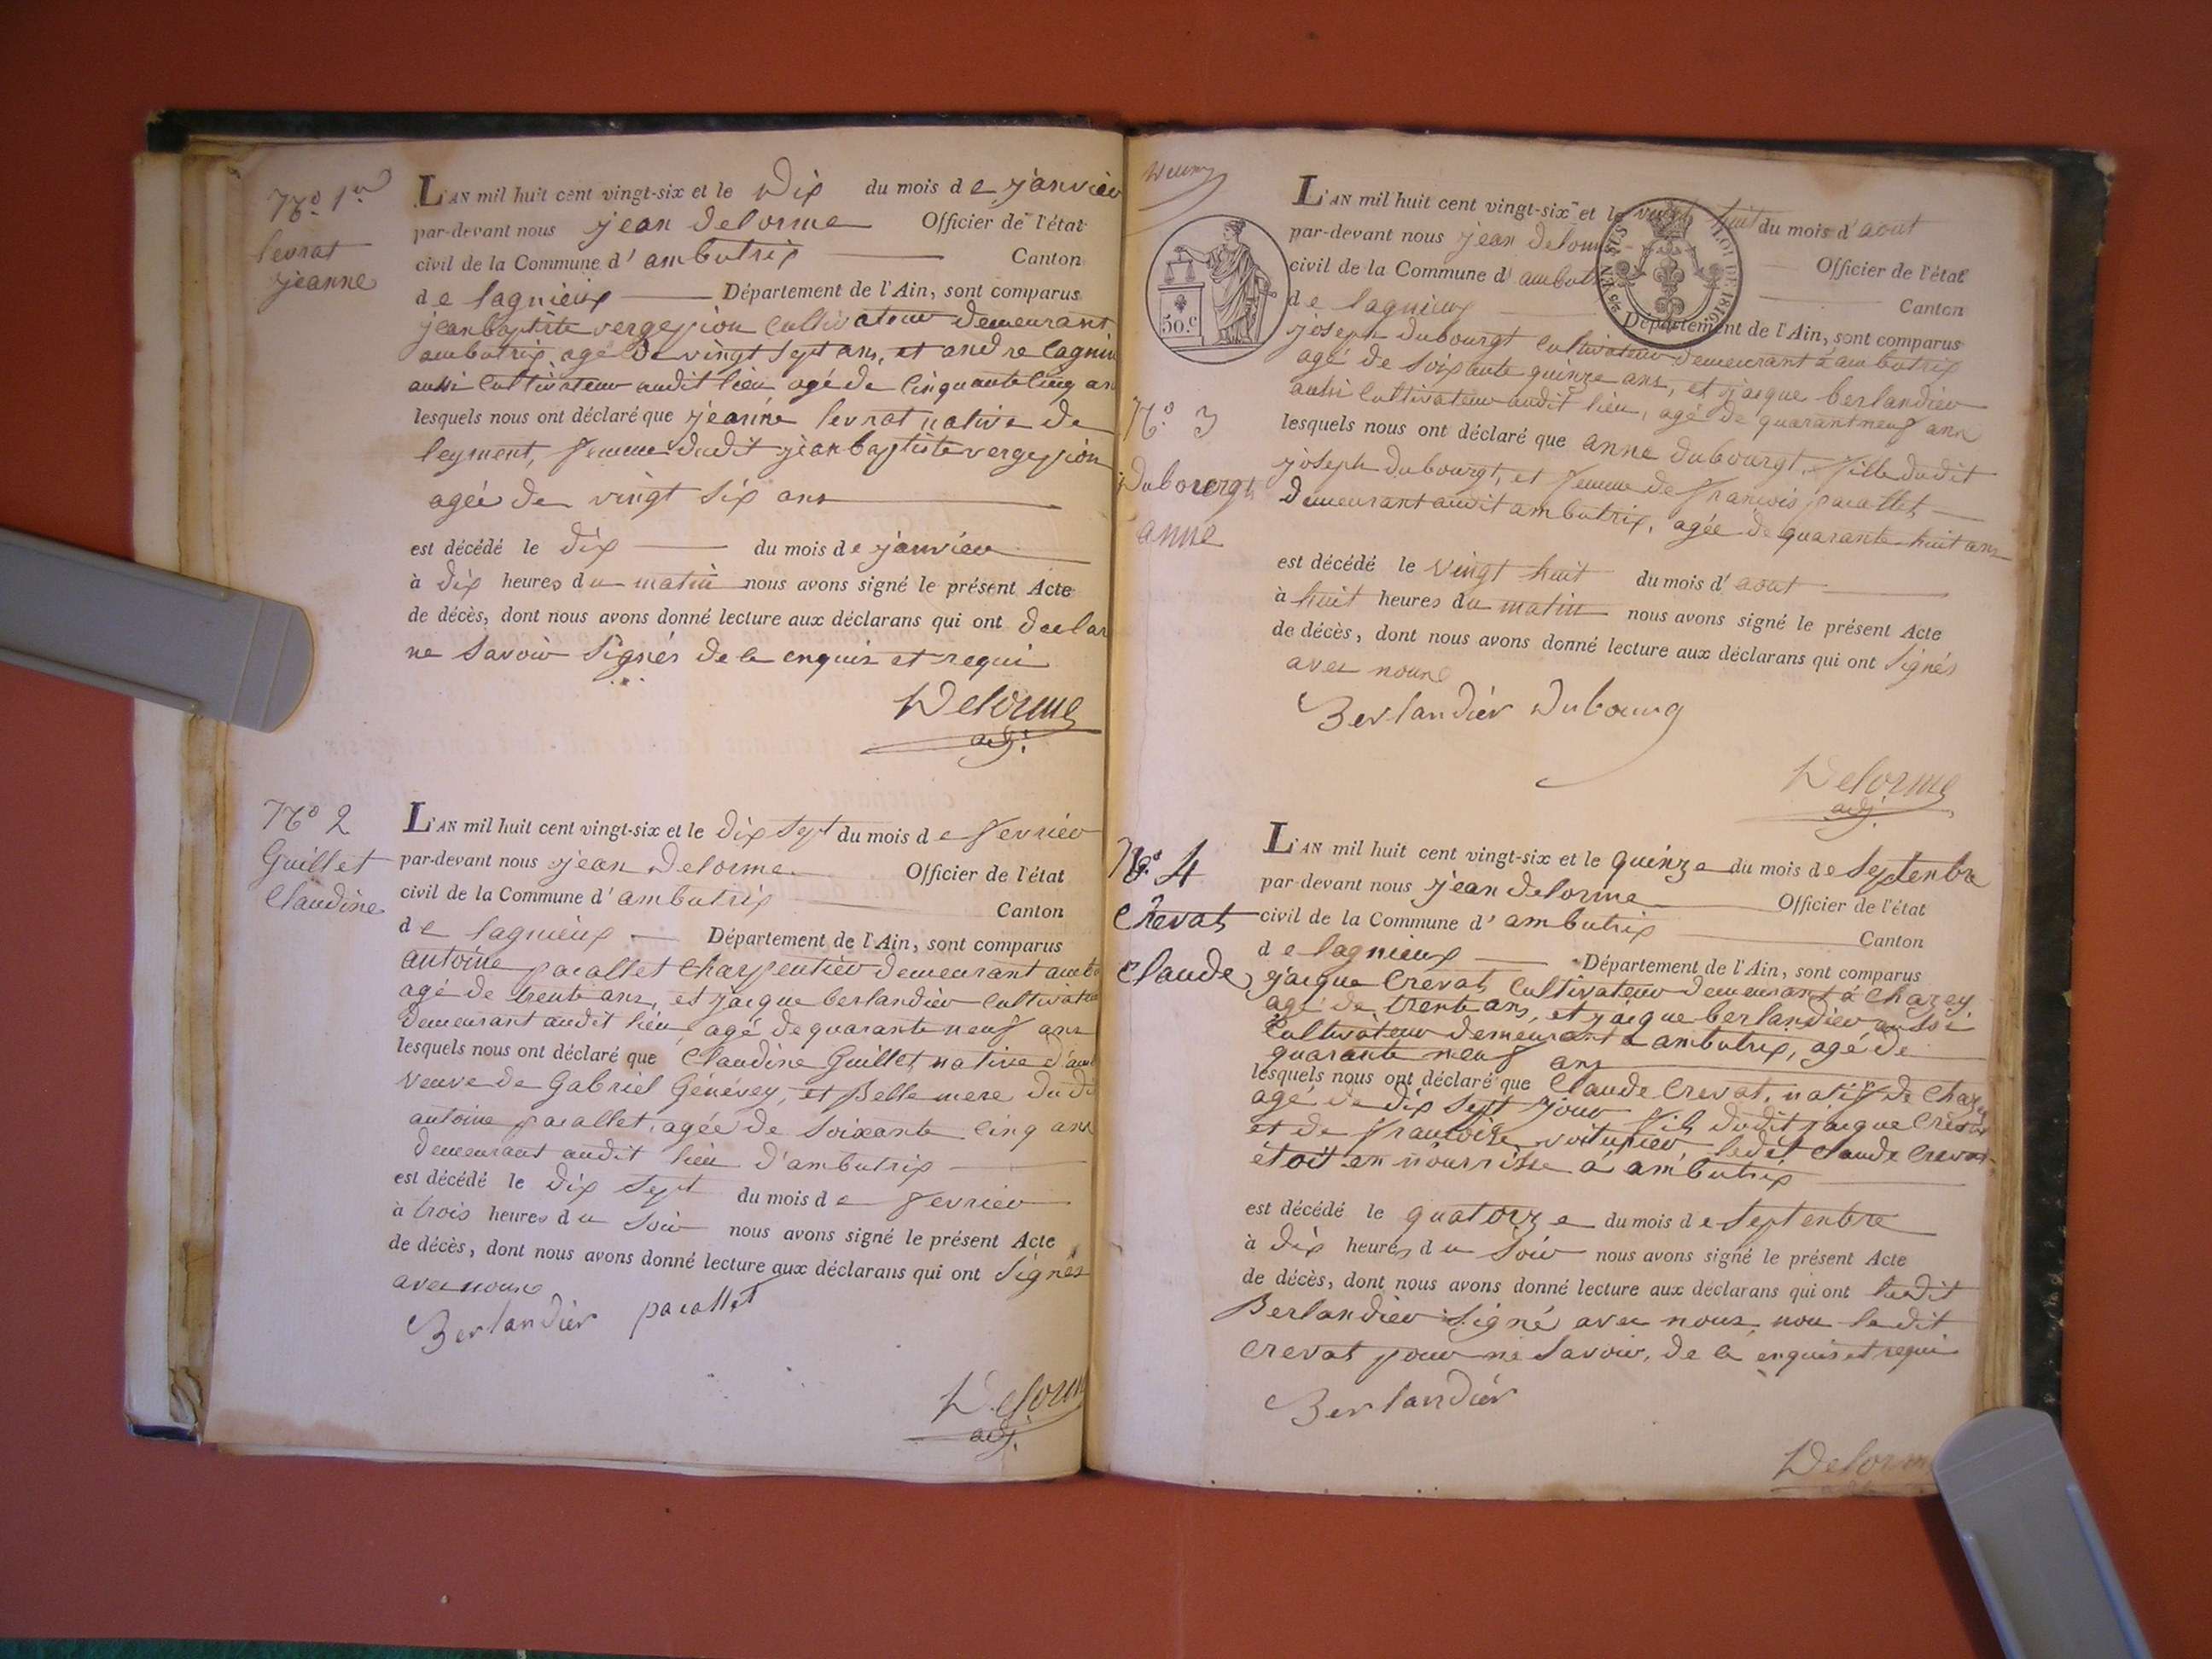 N.o 1er
levrat
jeanne
L'AN mil huit cent vingt-six et le Dix du mois de janvier
par-devant nous jean Delorme Officier de l'état
civil de la Commune d'ambutrix Canton
de lagnieux Département de l'Ain, sont comparus
jean baptiste vergession Cultivateur demeurant
ambutrix agé de vingt sept ans, et andre lagnin
aussi Cultivateur audit lieu agé de Cinquante Cinq an
lesquels nous ont déclaré que jeanne levrat native de
leyment, femme dudit jean baptiste vergession
agée de vingt six ans
est décédé le dix du mois de janvier
à dix heures du matin nous avons signé le présent Acte
de décès, dont nous avons donné lecture aux déclarans qui ont declar
ne savoir Signés de ce enquis et requi
Delorme
adj.
N.o 2
Guillet
Claudine
L'AN mil huit cent vingt-six et le dix sept du mois de fevrier
par-devant nous jean Delorme Officier de l'état
civil de la Commune d'ambutrix Canton
de lagnieux Département de l'Ain, sont comparus
antoine pacallet Charpentier demeurant amb
agé de trente ans, et jacque berlandier Cultivateu
demeurant audit lieu, agé de quarante neuf ans
lesquels nous ont déclaré que Claudine Guillet native d'amb
veuve de Gabriel Génévey, et Belle mere du di
antoine pacallet, agée de Soixante Cinq ans
demeurant audit lieu d'ambutrix
est décédé le dix Sept du mois de fevrier
à trois heures du Soir nous avons signé le présent Acte
de décès, dont nous avons donné lecture aux déclarans qui ont Signés
avec nous
Berlandier pacallet
Delorm
adj.
50.c
L'AN mil huit cent vingt-six et le vingt huit du mois d'aout
par-devant nous jean Delorme Officier de l'état
civil de la Commune d'ambutr Canton
de lagnieux Département de l'Ain, sont comparus
EN SUS LOI DE 1816.
N.o 3
Dubourgt
anne
joseph Dubourgt Cultivateur demeurant a ambutrix
agé de Soixante quinze ans, et jacque berlandier
aussi Cultivateur audit lieu, agé de quarante neuf ans
lesquels nous ont déclaré que anne Dubourgt, fille dudit
joseph dubourgt, et femme de françois pacallet
demeurant audit ambutrix, agée de quarante-huit ans
est décédé le vingt huit du mois d'aout
à huit heures du matin nous avons signé le présent Acte
de décès, dont nous avons donné lecture aux déclarans qui ont Signés
avec nous
Berlandier Dubourg
Delorme
adj.
N.o 4
Crevat
Claude
L'AN mil huit cent vingt-six et le quinze du mois de Septenbre
par-devant nous jean Delorme Officier de l'état
civil de la Commune d'ambutrix Canton
de lagnieux Département de l'Ain, sont comparus
jacque Crevat Cultivateur demeurant a Chazey
agé de trente ans, et jacque berlandier aussi
Cultivateur demeurant a ambutrix, agé de
quarante neuf ans
lesquels nous ont déclaré que Claude Crevat, natif de Chazey
agé de dix Sept jour fils dudit jacque Crevat
et de françoise voiturier, ledit Claude Crevat
étoit en nourrisse a ambutrix
est décédé le quatorze du mois de Septenbre
à Dix heures du Soir nous avons signé le présent Acte
de décès, dont nous avons donné lecture aux déclarans qui ont ledit
Berlandier Signé avec nous, non ledit
Crevat pour ne Savoir, de ce enquis et requi
Berlandier
Delorm